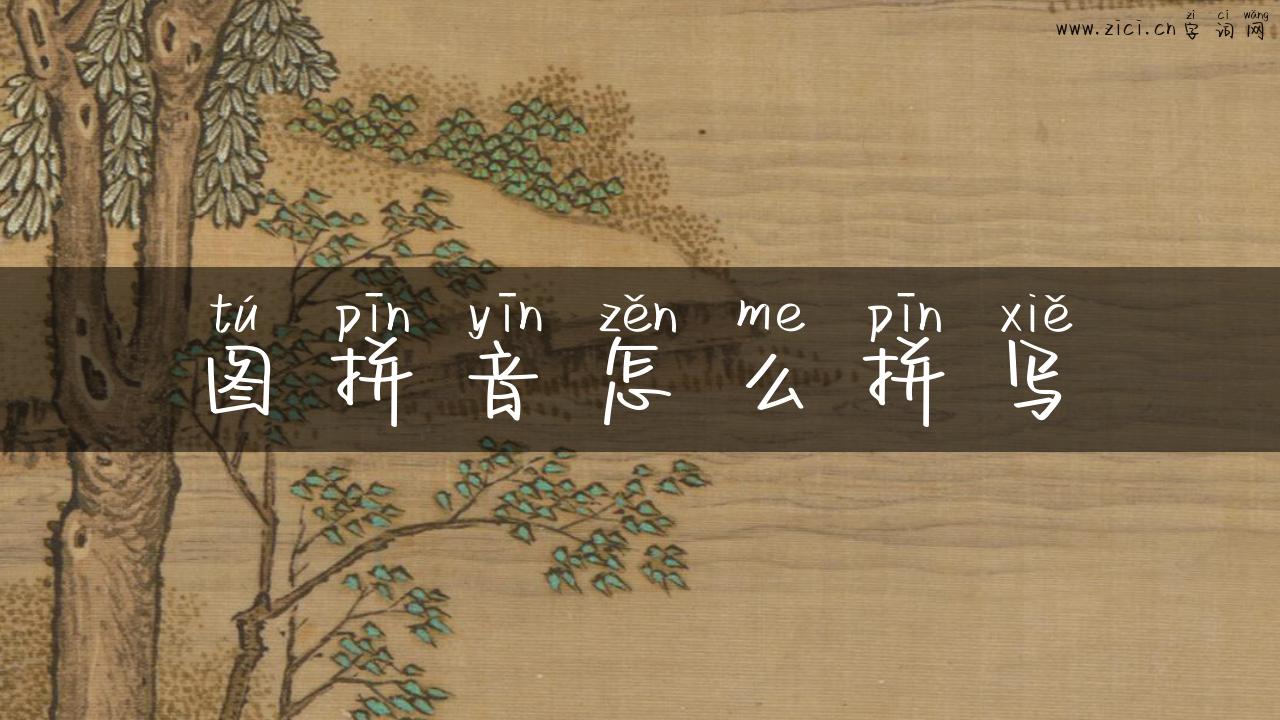 zì cí wǎng
www.zici.cn 字词网
tú pīn yīn zěn me pīn xiě
图拼音怎么拼写